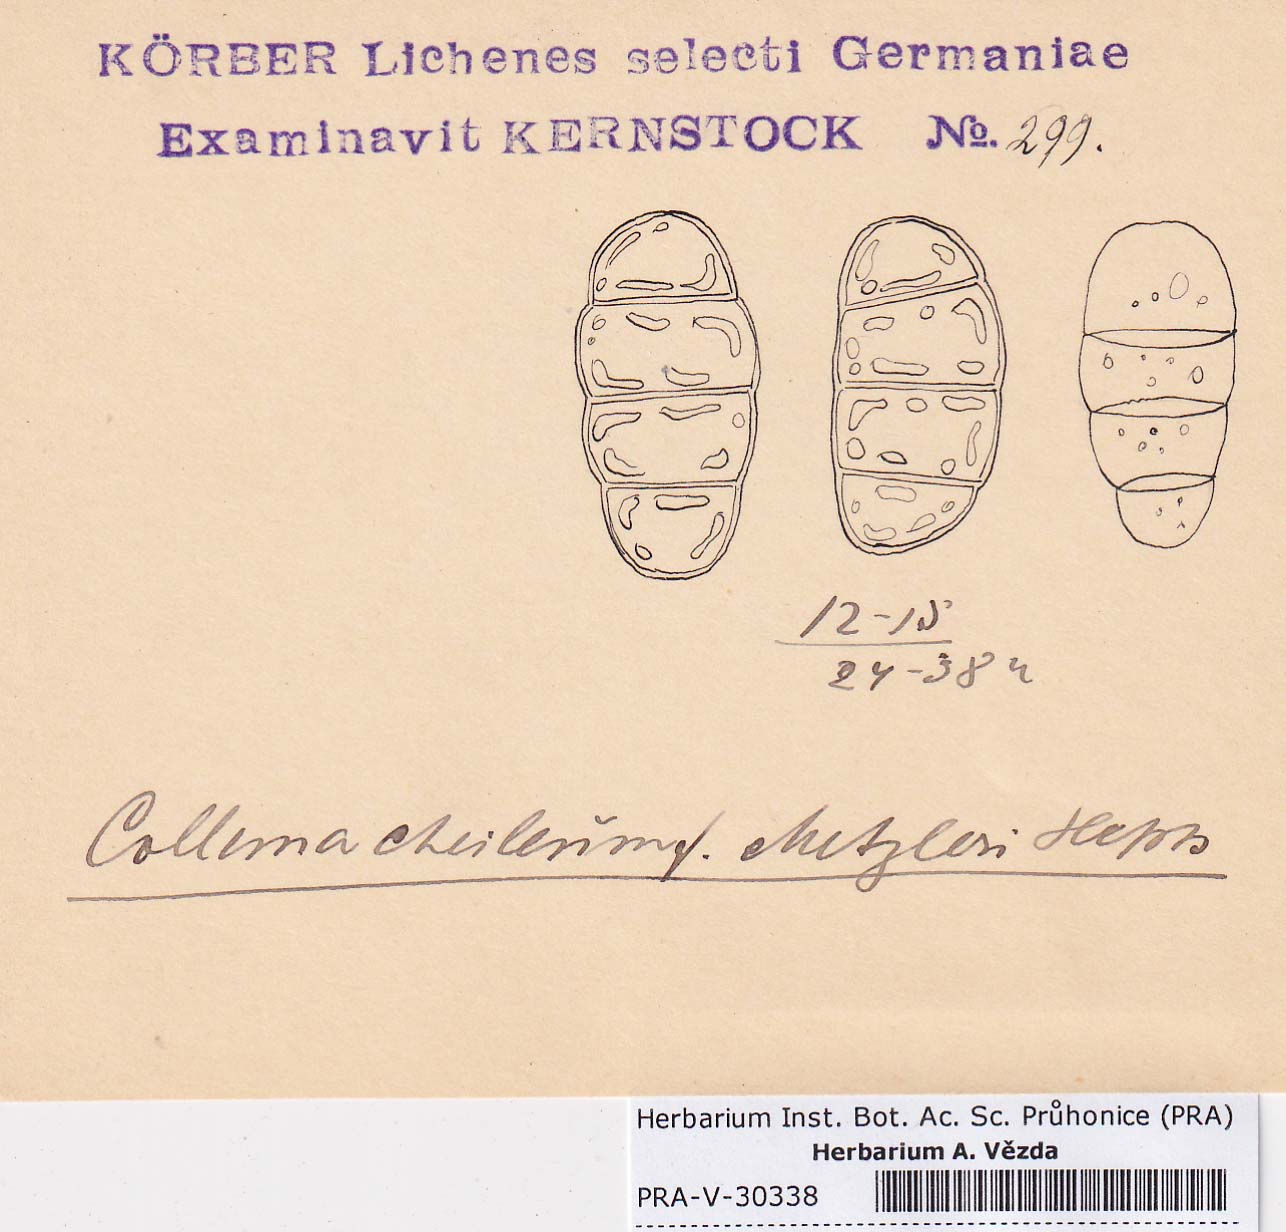 KÖRBER Lichenes selecti Germaniae
Examinavit KERNSTOCK No. 299.
12-15
24-38 μ
Collema cheileum f. Metzleri Hepp
Herbarium Inst. Bot. Ac. Sc. Průhonice (PRA)
Herbarium A. Vězda
PRA-V-30338